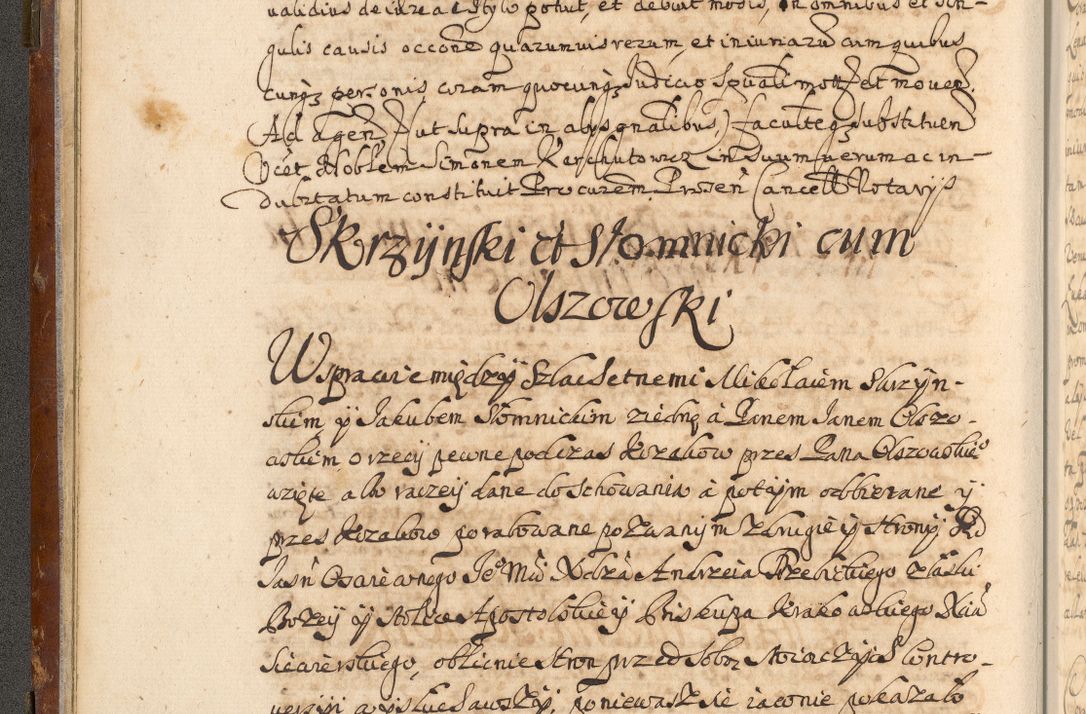 validius de iure ac stylo potuit, et debuit modis, in omnibus et sin-
gulis causis occone quarumvis rerum, et iniuriarū cum quibus
cunq personis coram quocunq Judicio Spūali mott et movend
Ad agend ut supra in alys gnalibus, Facultēq substituen
Ocet Noblem Simonem Kerchutowicz in suum verum ac in-
dubitatum constituit Procurem Presen Cancell Notarys
Skrzÿnski et Słomnicki cum
Olszowski
W sprawie międzÿ Szlachetnemi Mikołaiem Skrzÿn-
skim ÿ Jakubem Słomnickim ziednę à Panem Janem Olszo-
wskim, o rzecÿ pewne podczas Kozakow przes Pana Olszowskie
wzięte albo raczeÿ dane do schowania à potÿm odbierane ÿ
przes Kozakow porabowane pozwanÿm z drugieÿ stronÿ
Jasn Oswieconego Je Mci Xdza Andrzeia Trzebickiego z łaski
Bozeÿ ÿ Stolice Apostolskieÿ Biskupa Krakowskiego Xia
Siewierskiego, oblicznie stron przed sobą stoiącÿch Contro-
versÿi wÿsłuchawszÿ, poniewasz sie iawnie pokazało